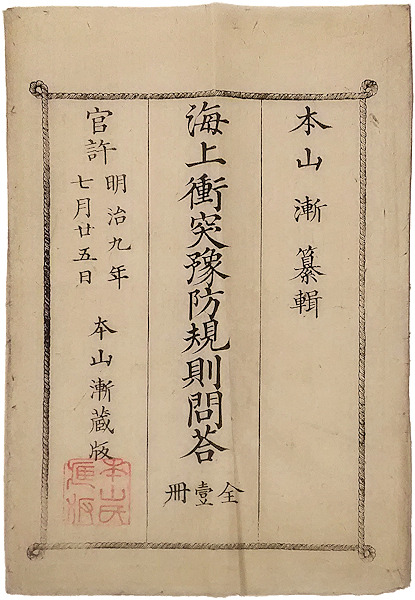 本山漸纂輯
海上衝突豫防規則問荅
全壹冊
官許明治九年
七月廿五日
本山漸藏版
本山氏